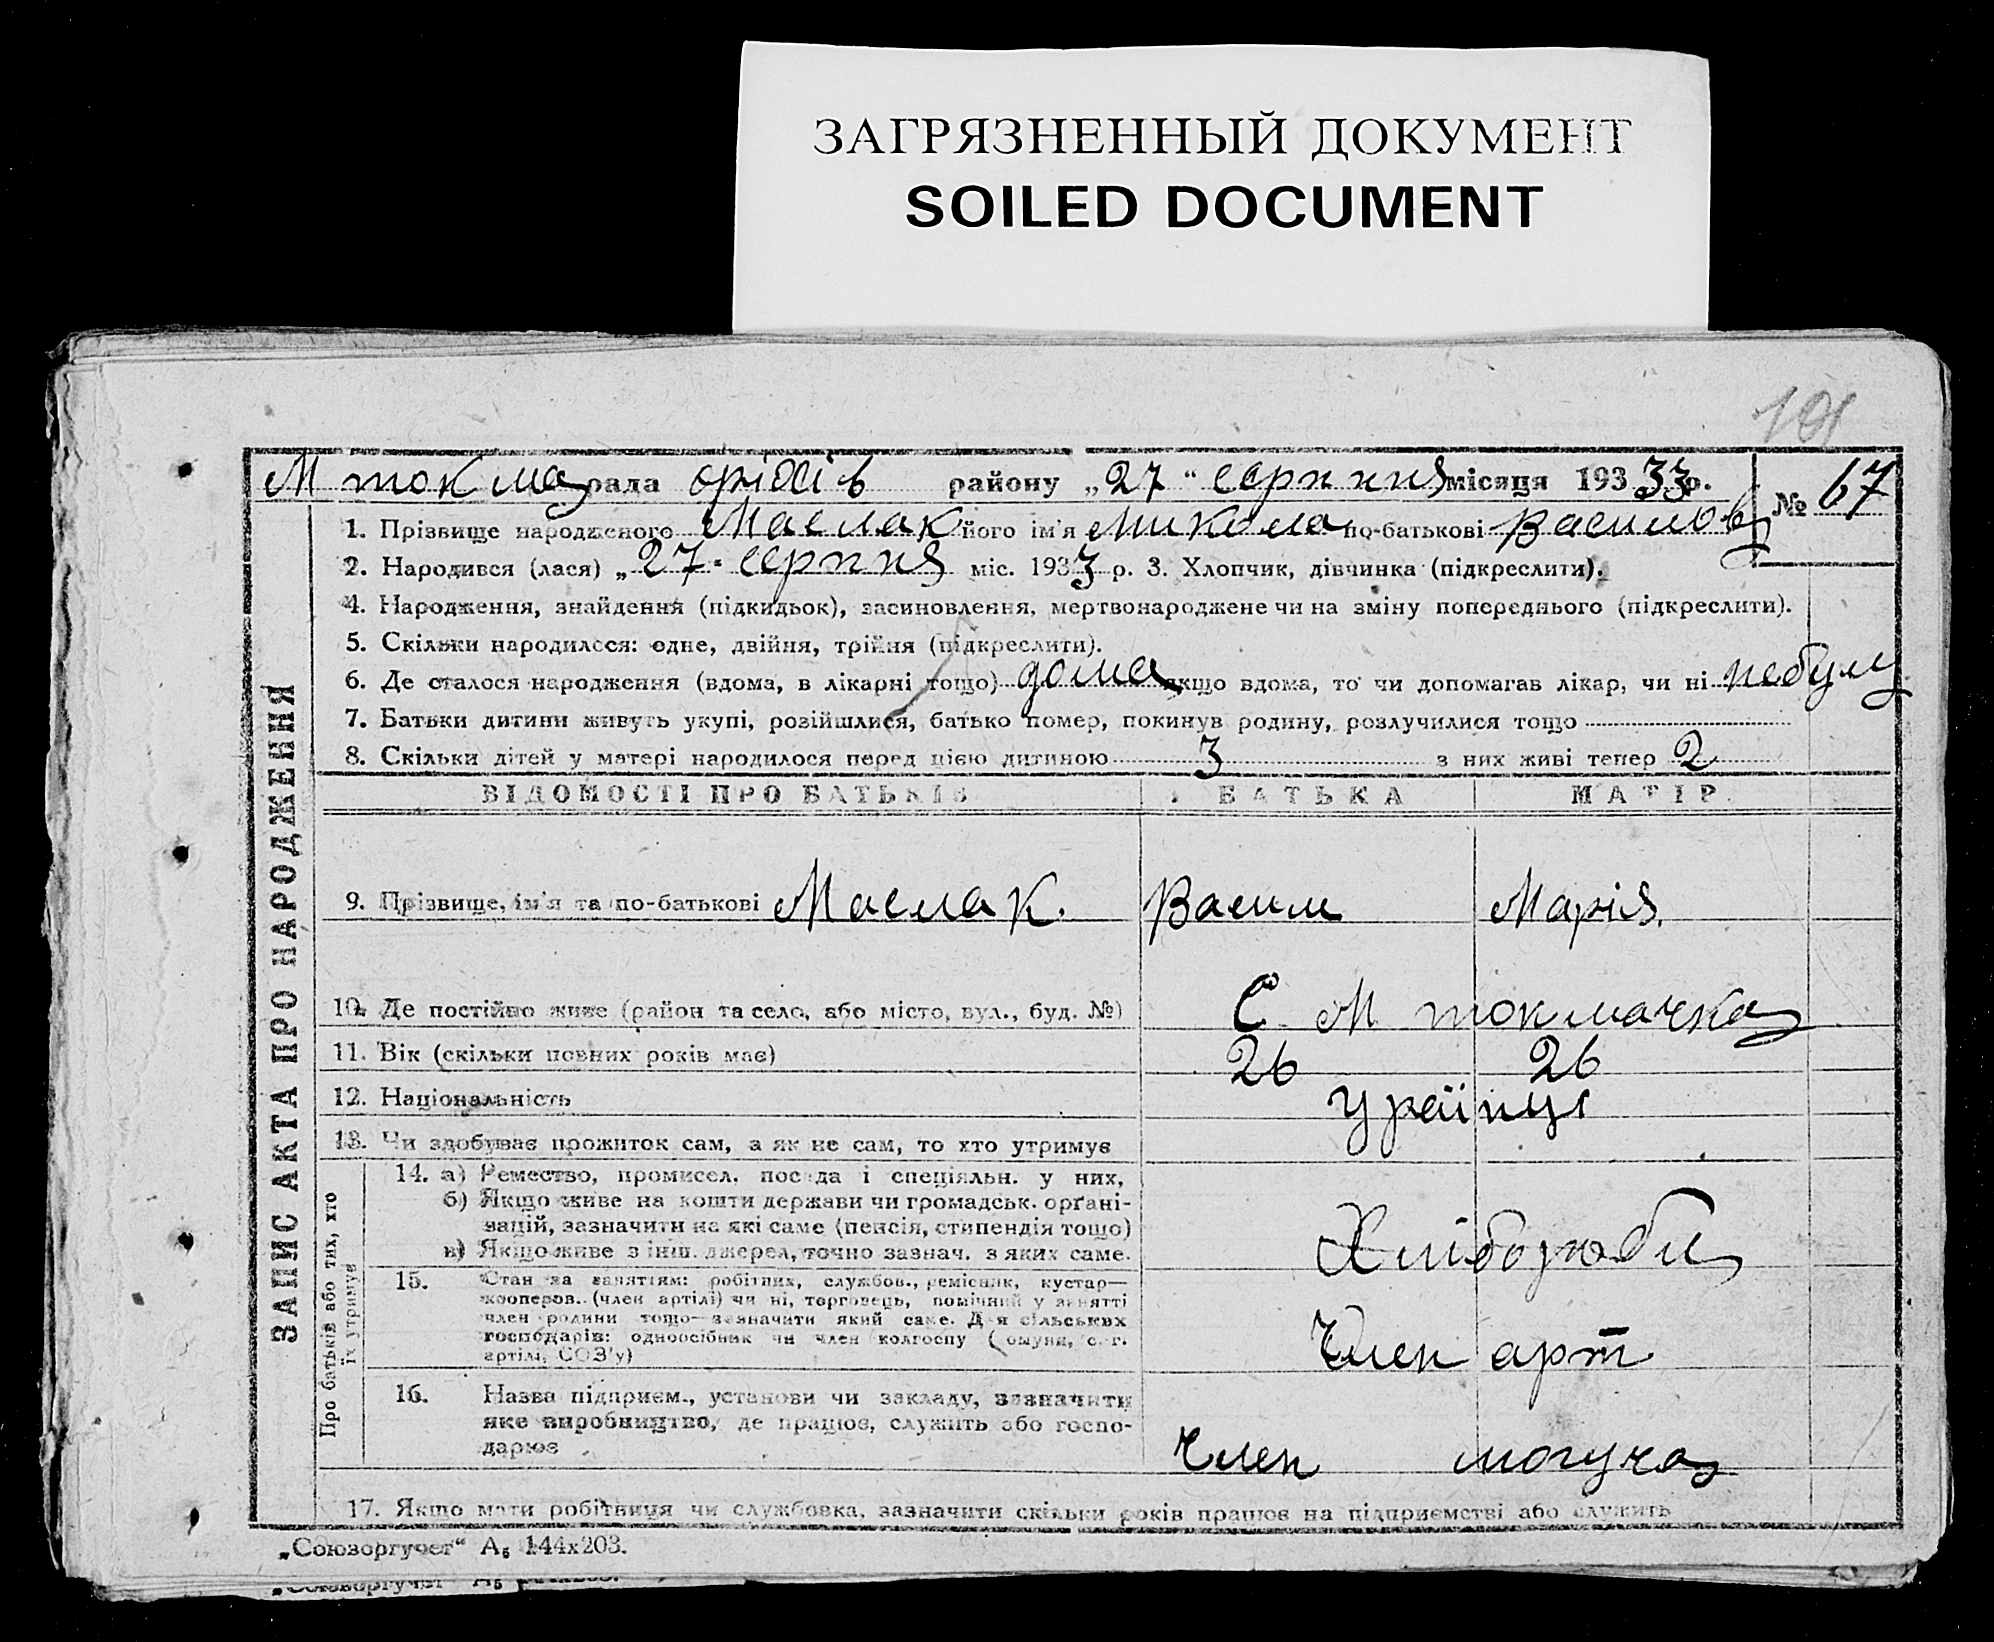 ЗАГРЯЗНЕННЫЙ ДОКУМЕНТ
SOILED DOCUMENT
191
М токма рада оріхів району „27“ серпня місяця 193 33 р. № 67
1. Прізвище народженого Маслак його ім'я Микола по-батькові Василов
2. Народився (лася) „27“ серпня міс. 1933 р. 3. Хлопчик, дівчинка (підкреслити).
4. Народження, знайдення (підкидьок), засиновлення, мертвонароджене чи на зміну попереднього (підкреслити).
5. Скільки народилося: одне, двійня, трійня (підкреслити).
6. Де сталося народження (вдома, в лікарні тощо) дома якщо вдома, то чи допомагав лікар, чи ні небулу
7. Батьки дитини живуть укупі, розійшлися, батько помер, покинув родину, розлучилися тощо
8. Скільки дітей у матері народилося перед цією дитиною 3 з них живі тепер 2
ЗАПИС АКТА ПРО НАРОДЖЕННЯ
ВІДОМОСТІ ПРО БАТЬКІВ БАТЬКА МАТІР
9. Прізвище, ім'я та по-батькові Маслак. Васил Марія.
10. Де постійно живе (район та село, або місто, вул., буд. №) С. М токмачка
11. Вік (скільки повних років має) 26 26
12. Національність Українці
13. Чи здобуває прожиток сам, а як не сам, то хто утримує
Про батьків або тих, хто
їх утримує
14. а) Ремество, промисел. посада і спеціяльн. у них,
б) Якщо живе на кошти держави чи громадськ. орґані-
зацій, зазначити на які саме (пенсія, стипендія тощо)
в) Якщо живе з інш. джерел, точно зазнач. з яких саме.
Хлібороби
15. Стан за заняттям: робітник, службов., ремісник, кустар—
кооперов. (член артілі) чи ні, торговець, помічний у занятті
член родини тощо—зазначити який саме. Для сільських
господарів: одноосібник чи член колгоспу (комуни, с.-г.
артілі, СОЗ'у)
Член арт
16. Назва підприєм., установи чи закладу, зазначити
яке виробництво, де працює, служить або госпо-
дарює
Член могуча
17. Якщо мати робітниця чи службовка, зазначити скільки років працює на підприємстві або служить
„Союзоргучет“ А₅ 144х203.
„Союзоргучет“ А₅